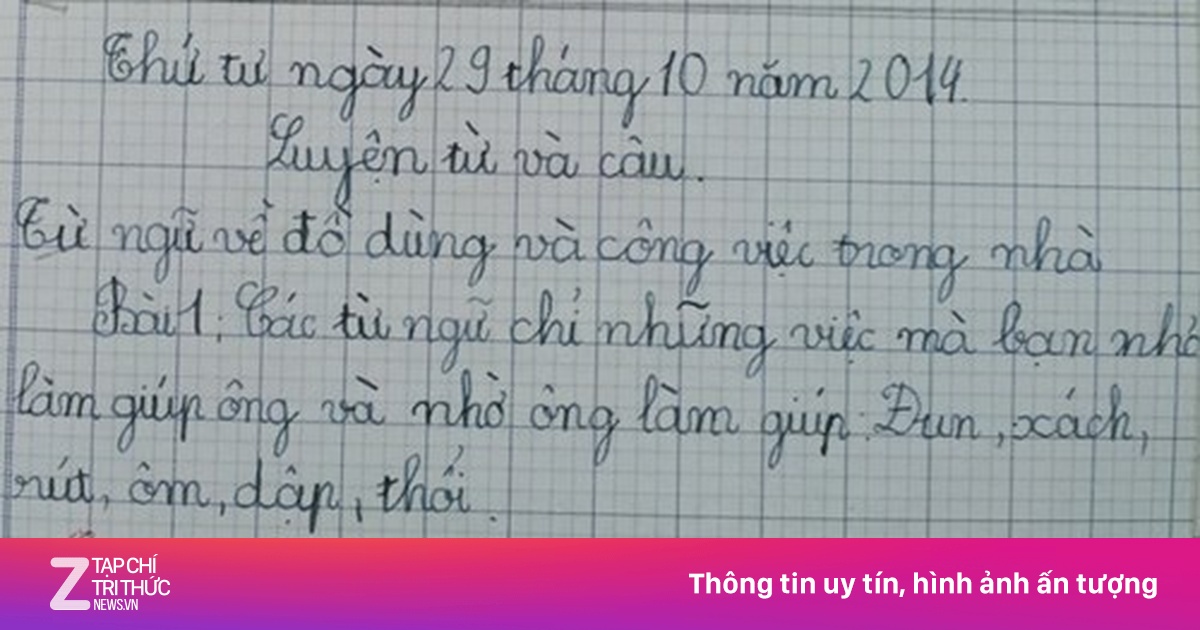 Thứ tư ngày 29 tháng 10 năm 2014.
Luyện từ và câu.
Từ ngữ về đồ dùng và công việc trong nhà
Bài 1: Các từ ngữ chỉ những việc mà bạn nhỏ
làm giúp ông và nhờ ông làm giúp: Đun, xách,
rút, ôm, dập, thổi.
TẠP CHÍ
TRI THỨC
NEWS.VN
Thông tin uy tín, hình ảnh ấn tượng